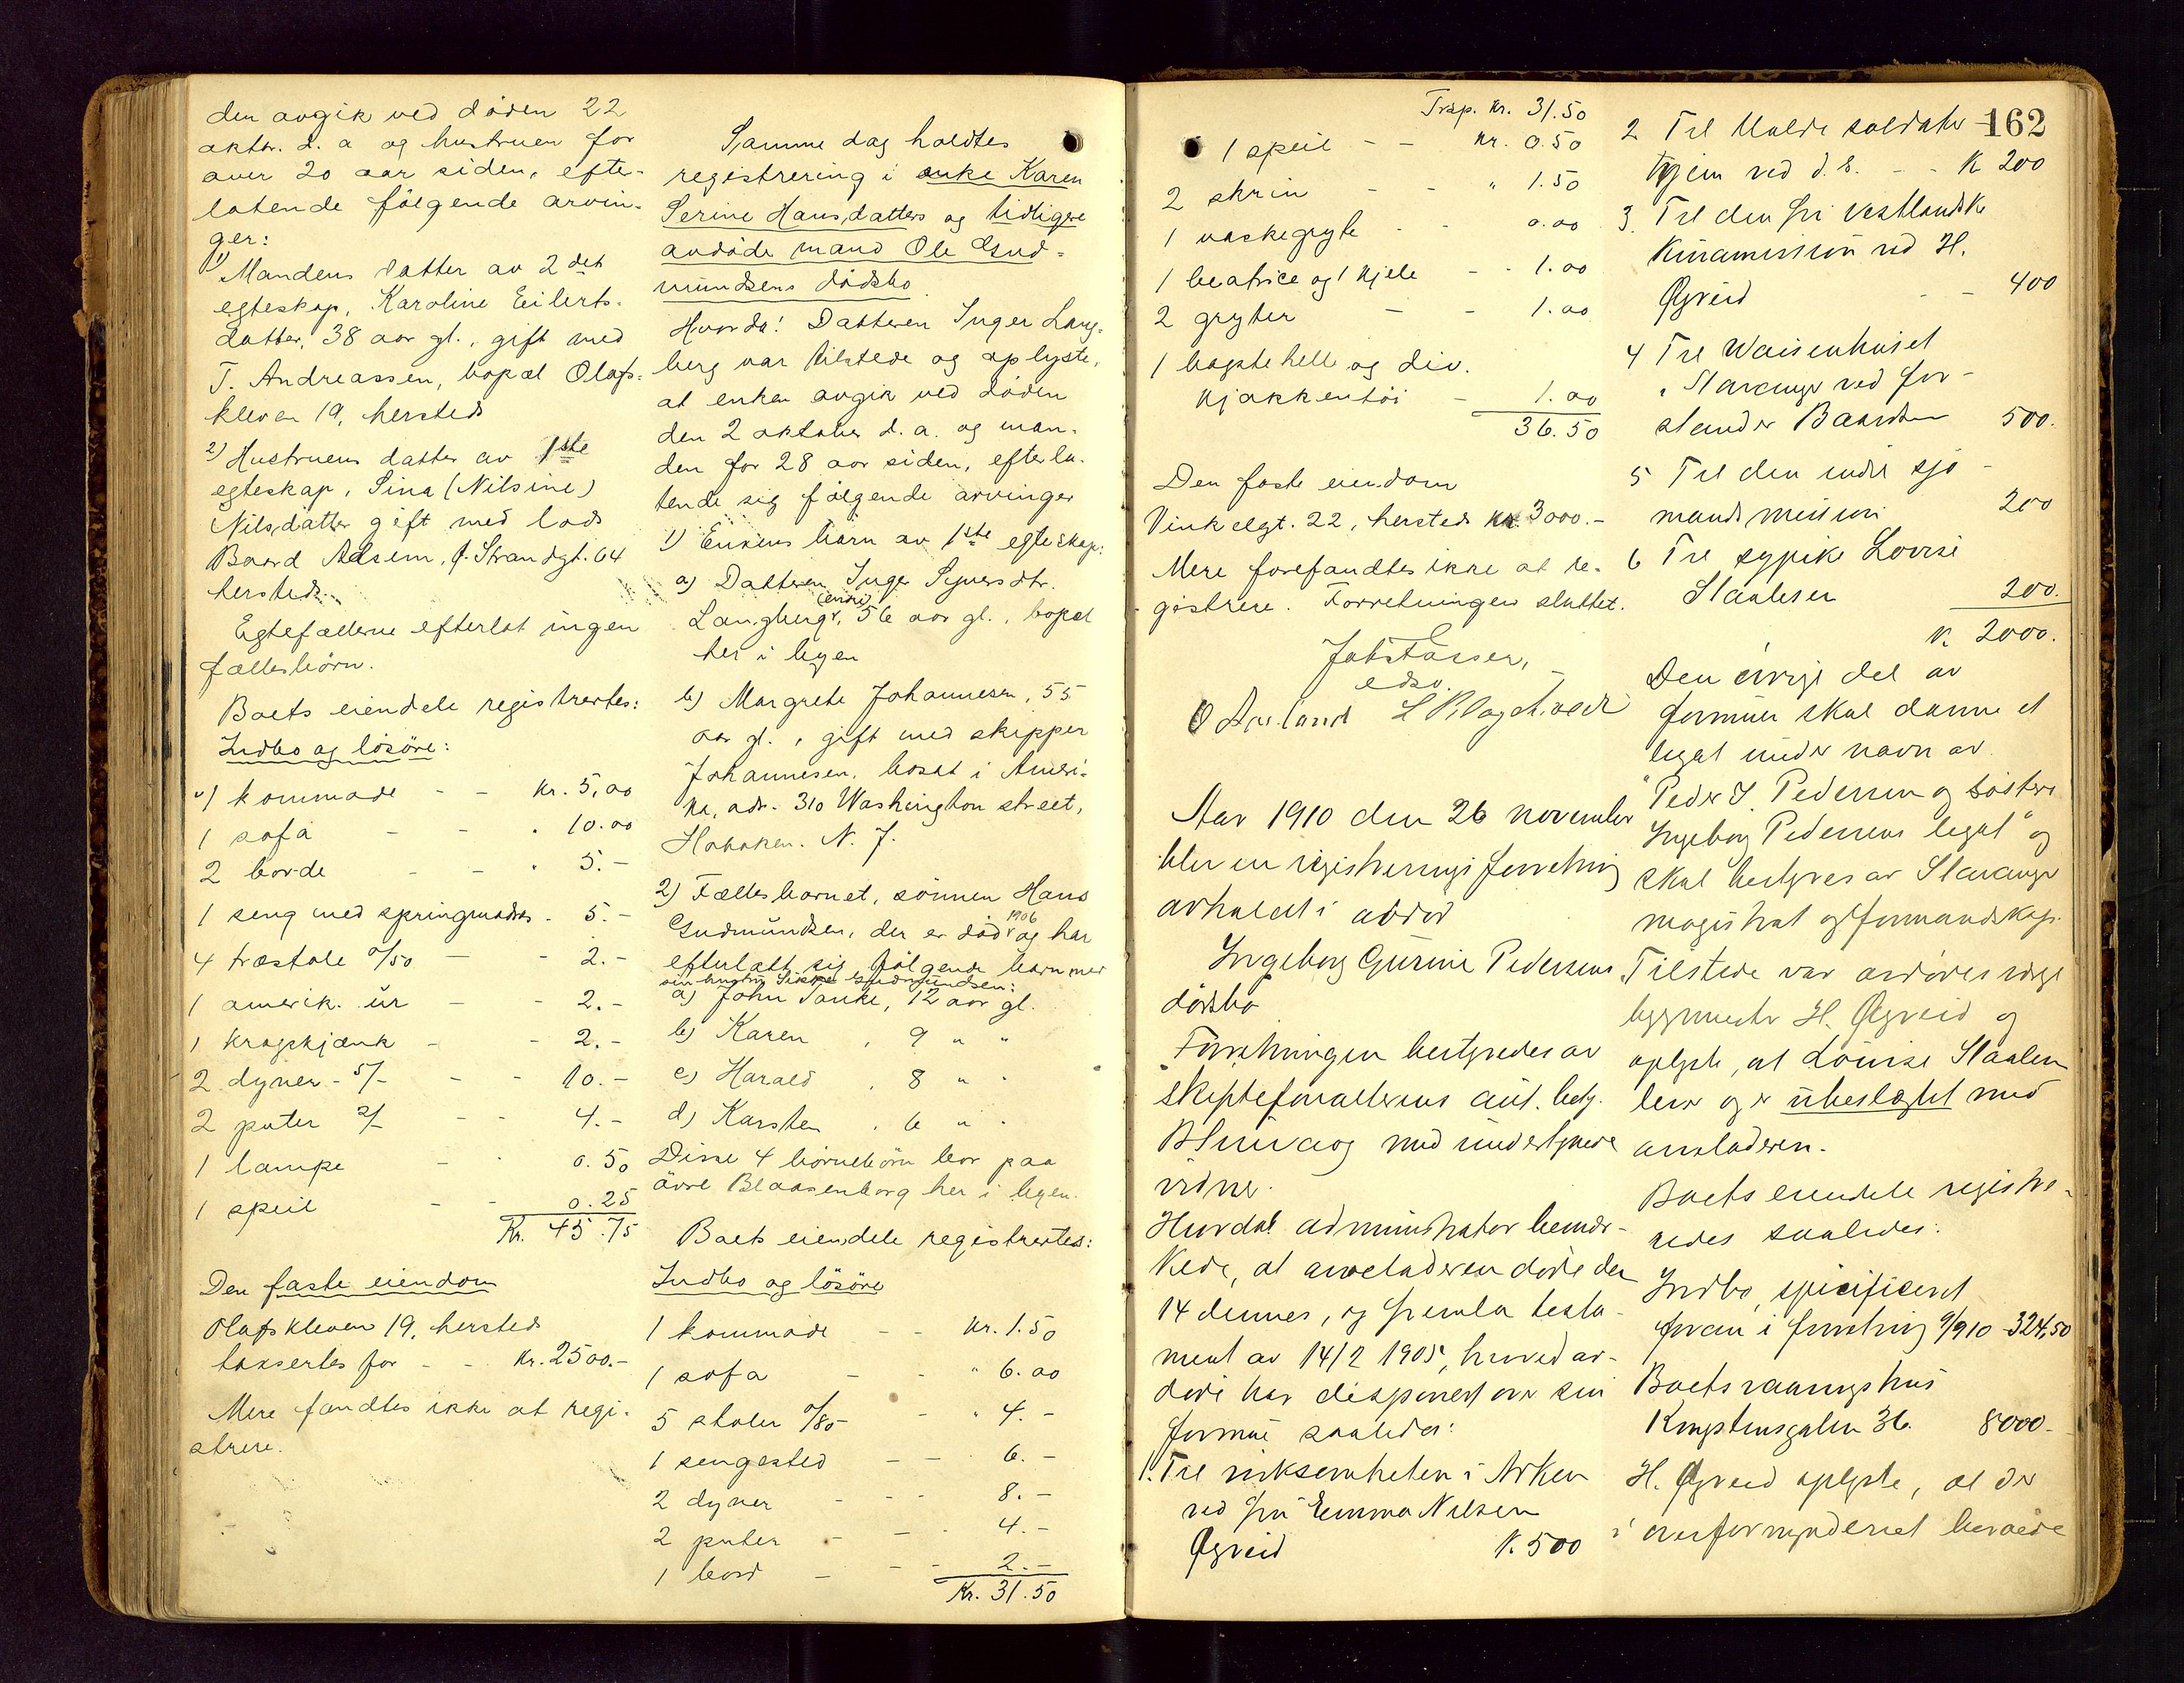 den avgik ved døden 22
oktbr. d. a og hustruen for
over 20 aar siden, efte-
latende følgende arvin-
ger:
1) Mandens datter av 2det
egteskap, Karoline Eilerts-
datter, 38 aar gl., gift med
T. Andreassen, bopæl Olafs-
kleven 19, hersteds
2) Hustruens datter av 1ste
egteskap, Sina (Nilsine)
Nilsdatter gift med lods
Baard Adsem, Ø. Strandgt. 64
hersteds.
Egtefællerne efterlot ingen
fællesbørn.
Boets eiendele registrertes:
Indbo og løsøre:
1 kommode - - Kr. 5,00
1 sofa - - " 10.00
2 borde - - " 5.-
1 seng med springmadras - 5.-
4 træstole 0/50 - - 2.-
1 amerik. ur - - 2.-
1 kragskjænk - - 2.-
2 dyner - 5/- - - 10.-
2 puter 2/- - - 4.-
1 lampe - - 0.50
1 speil - - 0.25
Kr. 45.75
Den faste eiendom
Olafskleven 19, hersteds
taksertes for - - Kr. 2500.-
Mere fandtes ikke at regi-
strere.
Samme dag holdtes
registrering i enke Karen
Serine Hansdatters og tidligere
avdøde mand Ole Gud-
mundsens dødsbo.
Hvorda! Datteren Inger Lang-
berg var tilstede og oplyste,
at enken avgik ved døden
den 2 oktober d. a. og man-
den for 28 aar siden, efterla-
tende sig følgende arvinger
1) Enkens børn av 1ste egteskap:
a) Datteren Inger Syversdtr.
Langberg, (enke) 56 aar gl., bopæl
her i byen
b) Margrete Johannesen, 55
aar gl., gift med skipper
Johannesen, bosat i Ameri-
ka, adr. 310 Washington street,
Hoboken. N. J.
2) Fællesbarnet, sønnen Hans
Gudmundsen, der er død 1906 og har
efterlatt sig følgende barn med
sin hustru Gudmundsen:
a) John Tanke, 12 aar gl.
b) Karen , 9 " "
c) Harald , 8 " "
d) Karsten , 6 " "
Disse 4 børnebørn bor paa
øvre Blaasenborg her i byen.
Boets eiendele registrertes:
Indbo og løsøre
1 kommode - - Kr. 1.50
1 sofa - - " 6.00
5 stoler 0/80 - " 4.-
1 sengested - - 6.-
2 dyner - - - 8.-
2 puter - - - 4.-
1 bord - - - 2.-
Kr. 31.50
162
Trsp. Kr. 31.50
1 speil - - Kr. 0.50
2 skrin - - " 1.50
1 vaskegryte - - 0.00
1 beatrice og 1 kjele - - 1.00
2 gryter - - 1.00
1 bagstehelle og div.
kjøkkentøi - 1.00
36.50
Den faste eiendom
Vinkelgt. 22, hersteds Kr. 3000.-
Mere forefandtes ikke at re-
gistrere. Forretningen sluttet.
edsv.
Aar 1910 den 26 november
blev en registreringsforretning
avholdt i avdød
Ingeborg Gurine Pedersens
dødsbo
Forretningen bestyredes av
skifteforvalterens aut. betj.
med undertegnede
vidner.
Hvorda! administrator bemær-
kede, at arveladeren døde den
14 dennes, og fremla testa-
ment av 14/2 1905, hvorved av-
døde har disponert over sin
formue saaledes:
1. Til virksomheten i Arken
ved fru Emma Nilsen
Øgreid K. 500
2 Til Molde soldater-
hjem ved d. s. - - K 200
3. Til den fri vestlandske
Kinamission ved H.
Øgreid - - 400
4 Til Waisenhuset
i Stavanger ved for-
stander Baardsen 500.
5 Til den indre sjø-
mandsmission 200
6 Til sypike Lovise
Staalesen 200.
K. 2000.
Den øvrige del av
formuen skal danne et
legat under navn av
"Peder J. Pedersen og søster
Ingeborg Pedersens legat" og
skal bestyres av Stavanger
magistrat og formandskap.
Tilstede var avdødes verge
byggmester H. Øgreid og
oplyste, at Louise Staalen
lever og er ubeslægtet med
arveladeren.
Boets eiendele registre-
redes saaledes:
Indbo, spicificeret
foran i forretning 9/9 10 - 324,50
Boets vaaningshus
Kongstensgaten 36. 8000.-
H. Øgreid oplyste, at der
i overformynderiet beroede